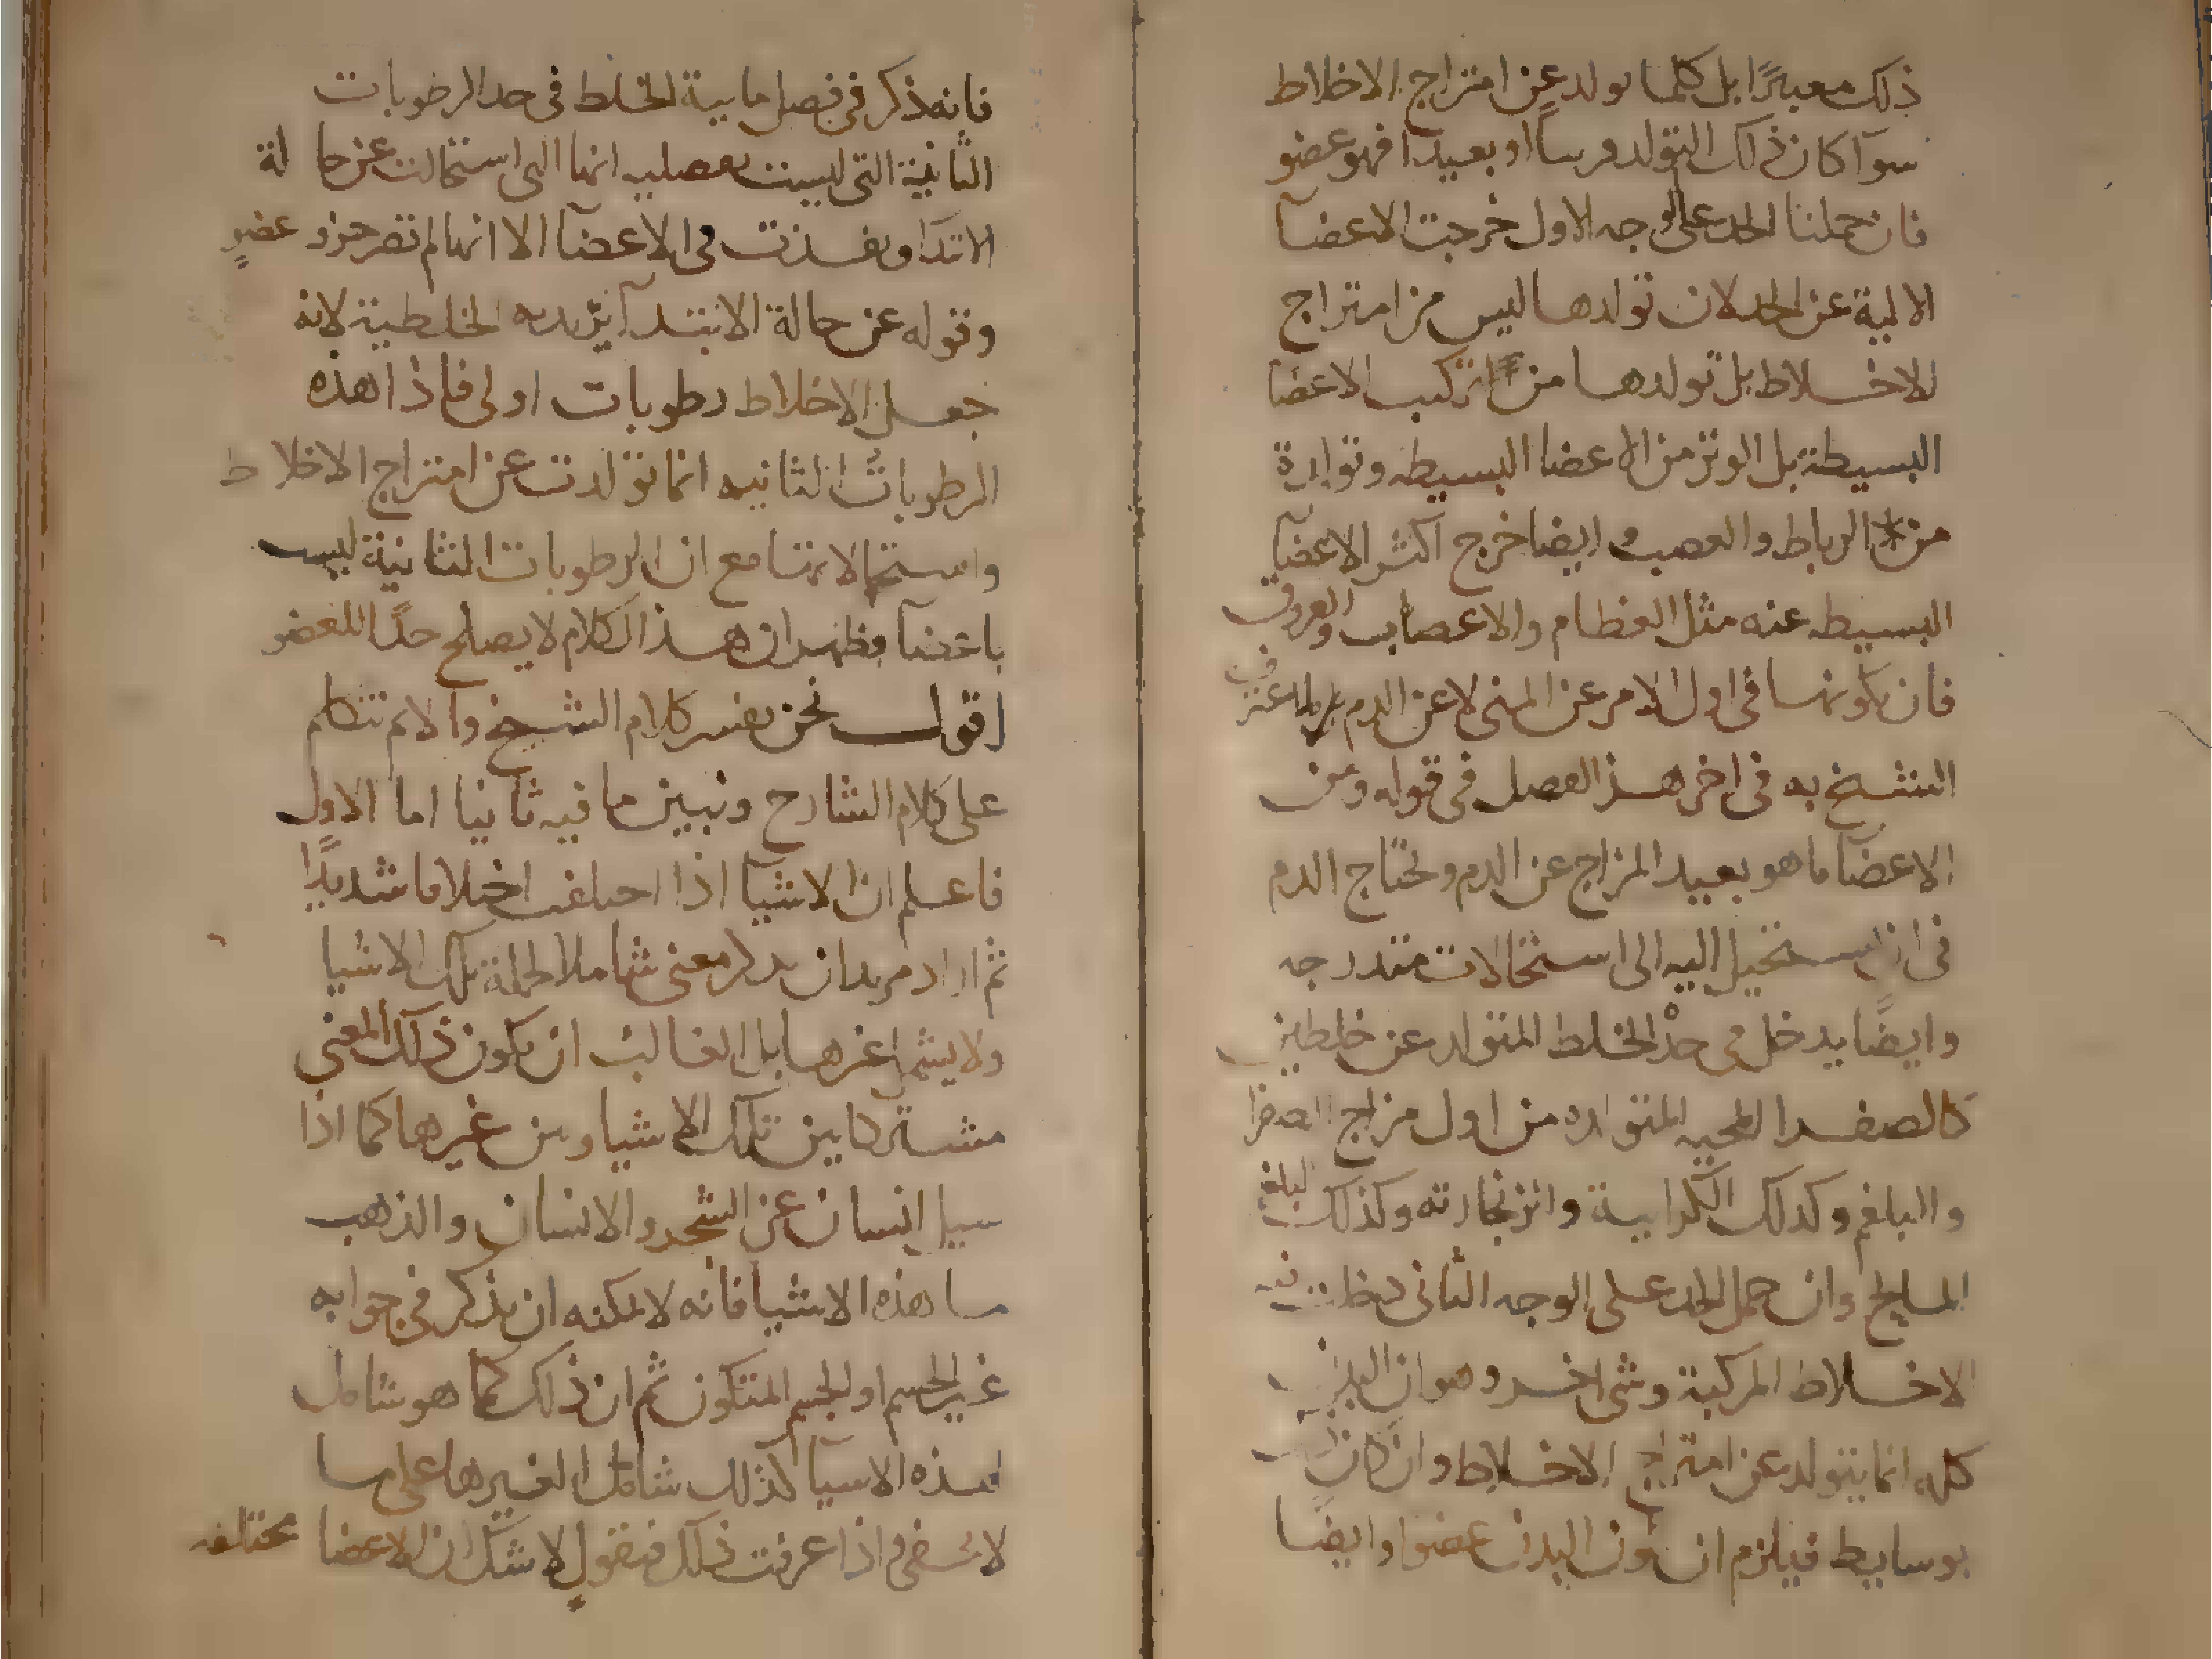 ذلك معبرًا بل كلما يولد عن امتزاج الاخلاط
سوآ كان ذلك التولد قريبًا او بعيدا فهو عضو
فان حملنا الحد على الوجه الاول خرجت الاعضآ
الالية عن الحد لان تولدها ليس من امتزاج
الاخلاط بل تولدها من تركيب الاعضا
البسيطة بل الوتر من الاعضا البسيطه وتولده
من الرباط والعصب وايضا خرج اكثر الاعضآ
البسيطه عنه مثل العظام والاعصاب والعروق
فان تكونها فى اول الامر عن المنى لا عن الدم
الشيخ به فى اخر هذ الفصل فى قوله ومن
الاعضآ ما هو بعيد المزاج عن الدم ويحتاج الدم
فى ان يستحيل اليه الى استحالات متدرجه
وايضًا يدخل فى حدّ الخلط المتولد عن خلطين
كالصفرا المحيه المتولده من اول مزاج الصفرا
والبلغم وكدلك الكراثية والزنجارته وكذلك البلغم
المالح وان حمل الحد على الوجه الثانى
الاخلاط المركبة وشى اخر وهو ان البدن
كله انما يتولد عن امتزاج الاخلاط وان كان
بوسايط فيلزم ان يكون البدن عضوا وايضًا
فانه ذكر فى فصل ماهية الخلط فى حد الرطوبات
الثانية التى ليست بفصليه انها التى استحالت عن حالة
الابتدا ونفذت فى الاعضآ الا انها لم تصر جزو عضوٍ
وقوله عن حالة الابتدآ يريد به الخلطية لانه
جعل الاخلاط رطوبات اولى فاذا هذه
الرطوبات الثانيه انما تولدت عن امتزاج الاخلاط
واستحالاتها مع ان الرطوبات الثانية ليست
باعضآ فظهر ان هذا الكلام لا يصلح حدًا للعضو
اقول نحن نفسر كلام الشيخ والا ثم نتكلم
على كلام الشارح ونبين ما فيه ثانيا اما الاول
فاعلم ان الاشيآ اذا اختلفت اختلافا شديدًا
ثم اراد مريد ان يذكر معنى شاملا لجملة تلك الاشيا
ولا يشمل غيرها بل الغالب ان يكون ذلك المعنى
مشتركا بين تلك الاشيا وبين غيرها كما اذا
سيل انسان عن الشجر والانسان والذهب
ما هذه الاشيا فانه لا يمكنه ان يذكر فى جوابه
غير الجسم او الجسم المتكون ثم ان ذلك كما هو شامل
لهذه الاشيآ كذلك شامل لغيرها على ما
لا يخفى واذا عرفت ذلك فنقول لا شك ان الاعضا مختلفه